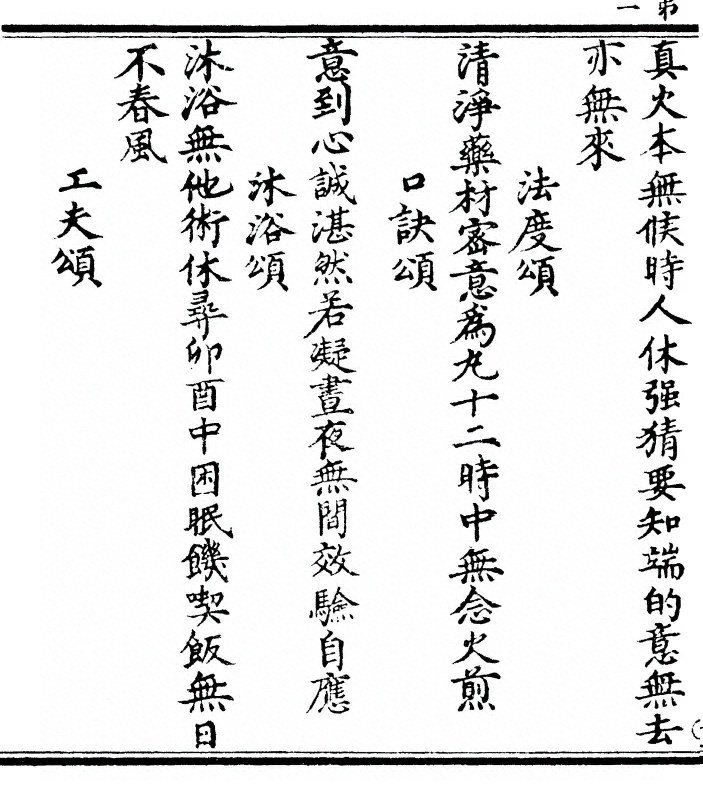 第一
真火本無候時人休强猜要知端的意無去
亦無來
法度頌
清淨藥材密意為丸十二時中無念火煎
口訣頌
意到心誠湛然若凝晝夜無間效驗自應
沐浴頌
沐浴無他術休尋卯酉中困眠饑喫飯無日
不春風
工夫頌